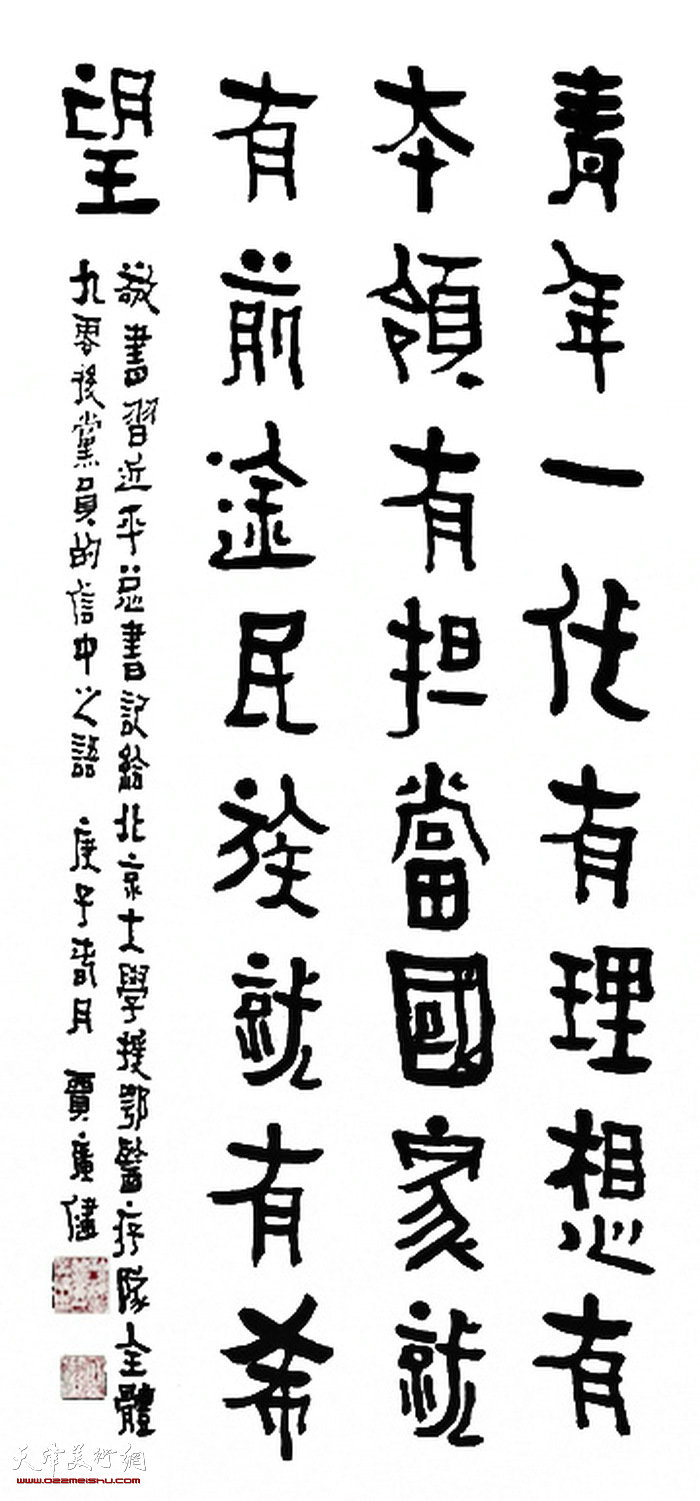 青年一代有理想有
本領有担當國家就
有前途民族就有希
望
敬書習近平总書記給北京大學援鄂醫疗隊全體
九零後黨員的信中之語 庚子春月 賈廣健
天津美術網
www.022meishu.com